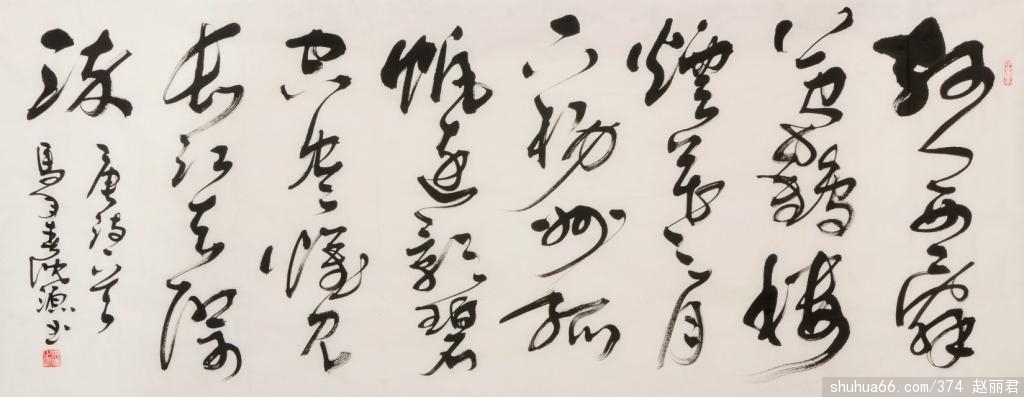 故人西辭
黄鶴樓
煙花三月
下揚州孤
帆遠影碧
空盡惟見
長江天際
流
唐詩一首
馬年春沈源书
shuhua66.com/374 赵丽君